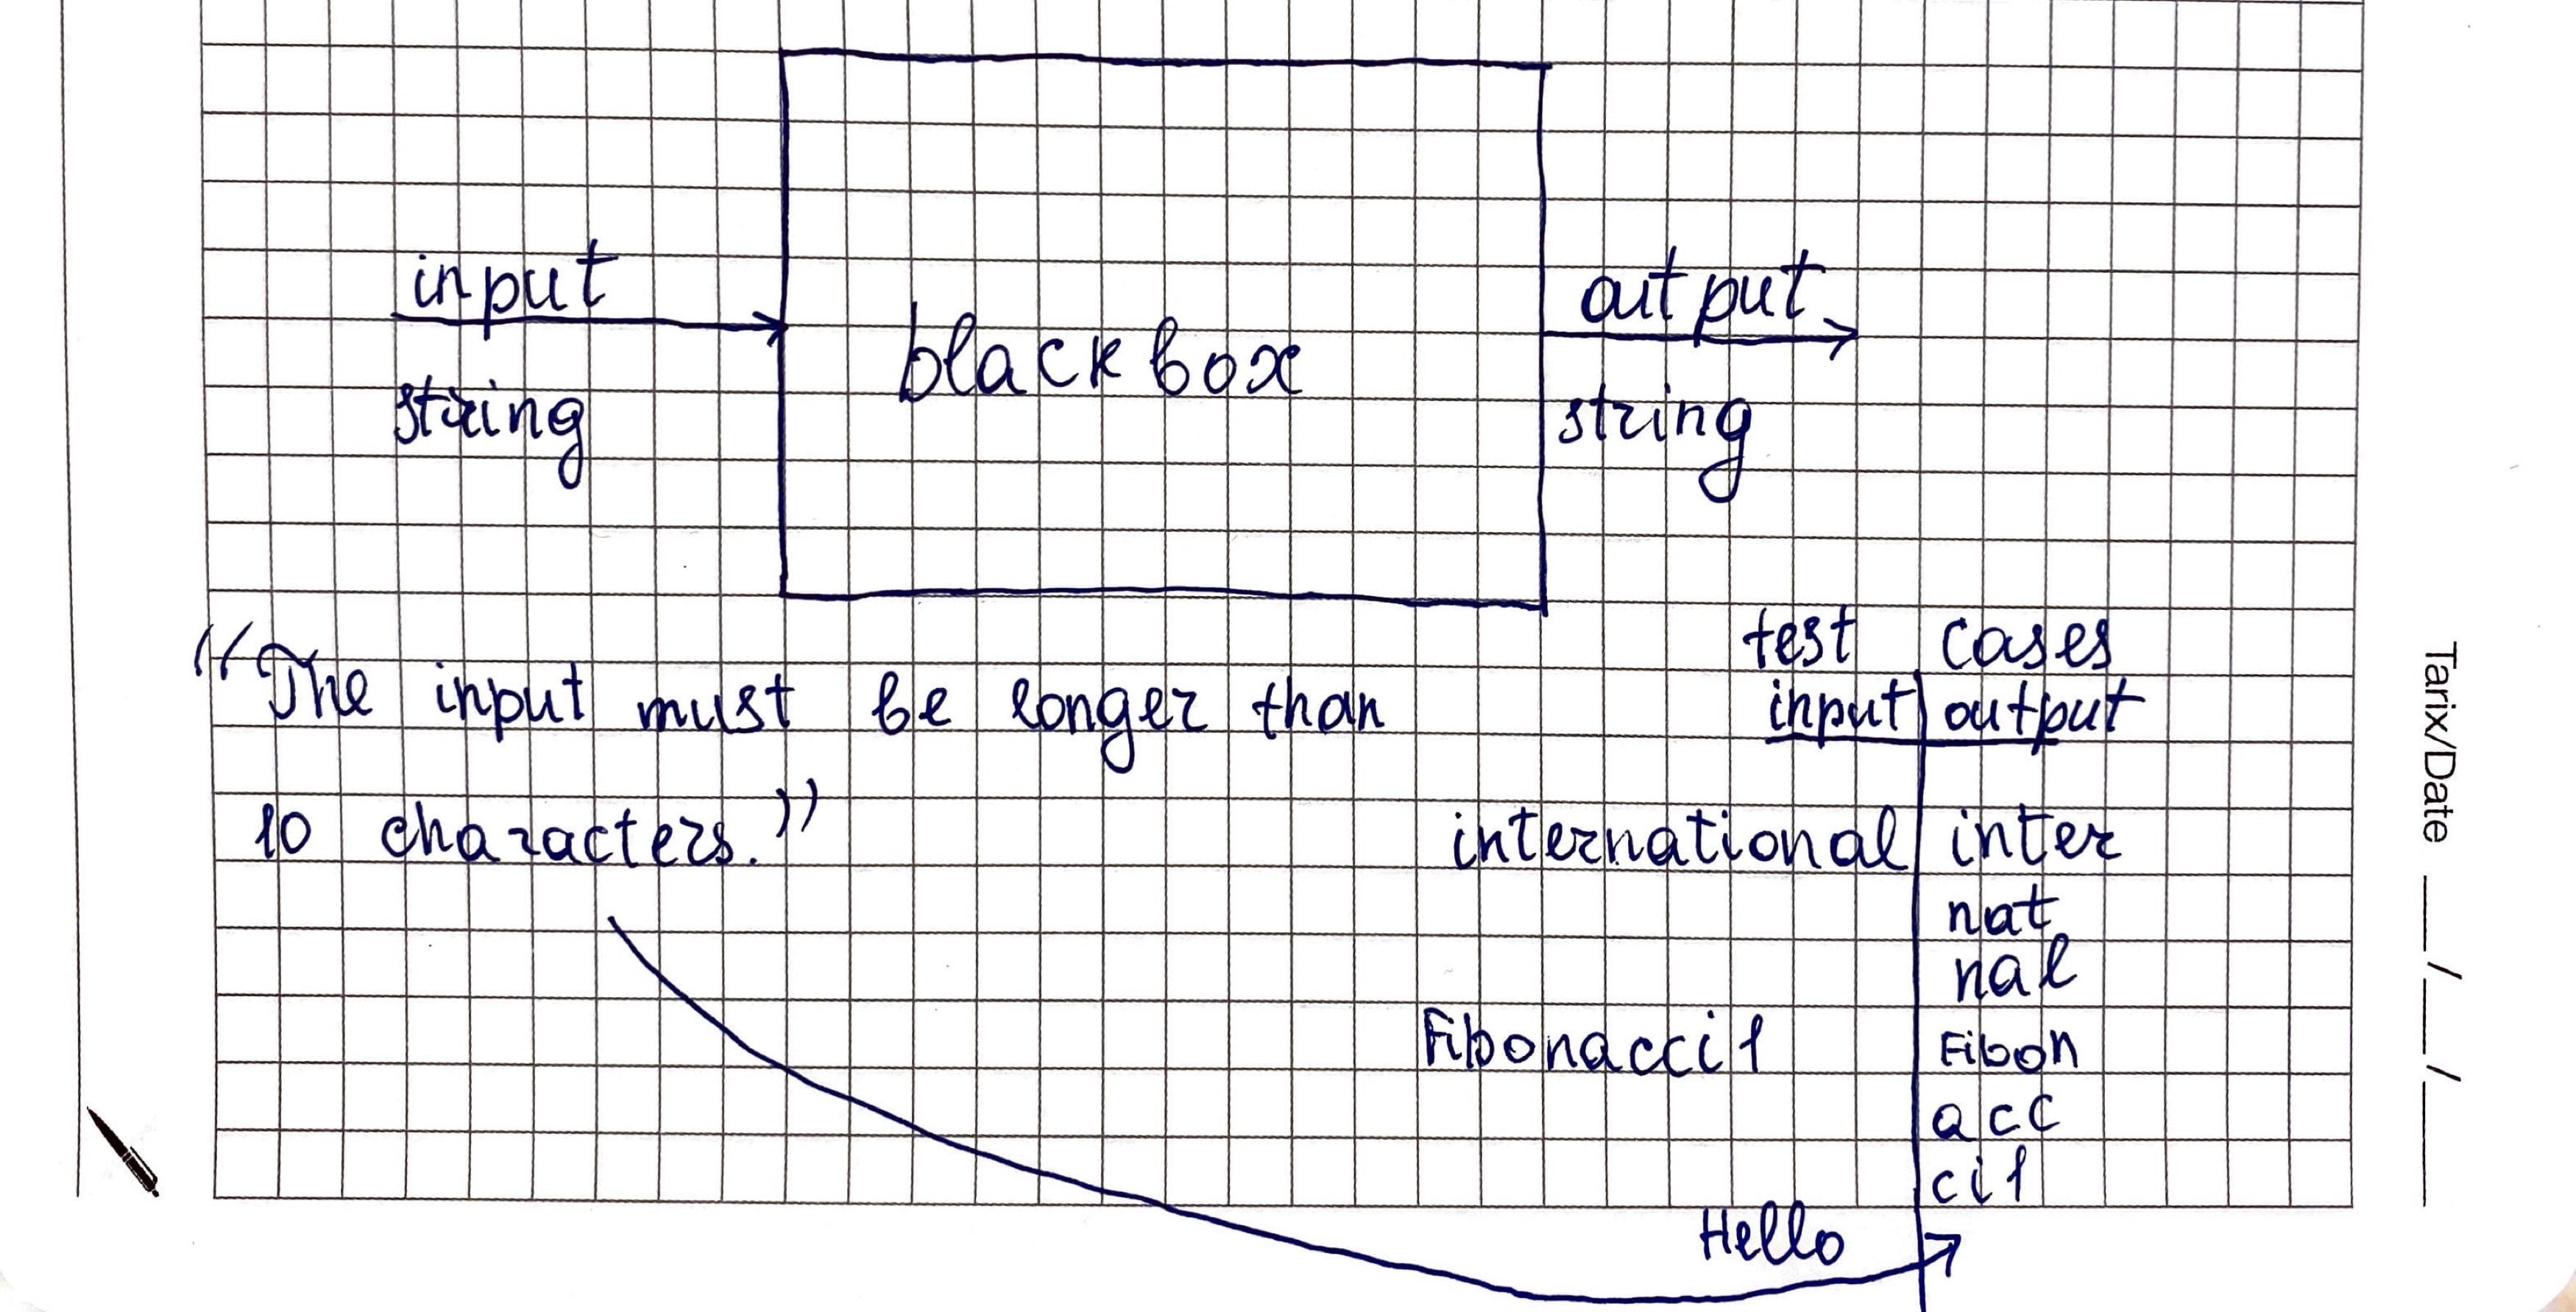 input
string
black box
output
string
"The input must be longer than
10 characters."
test cases
input output
international inter
nat
nal
Fibonacci1 Fibon
acc
ci1
Hello
Tarix/Date __/__/__